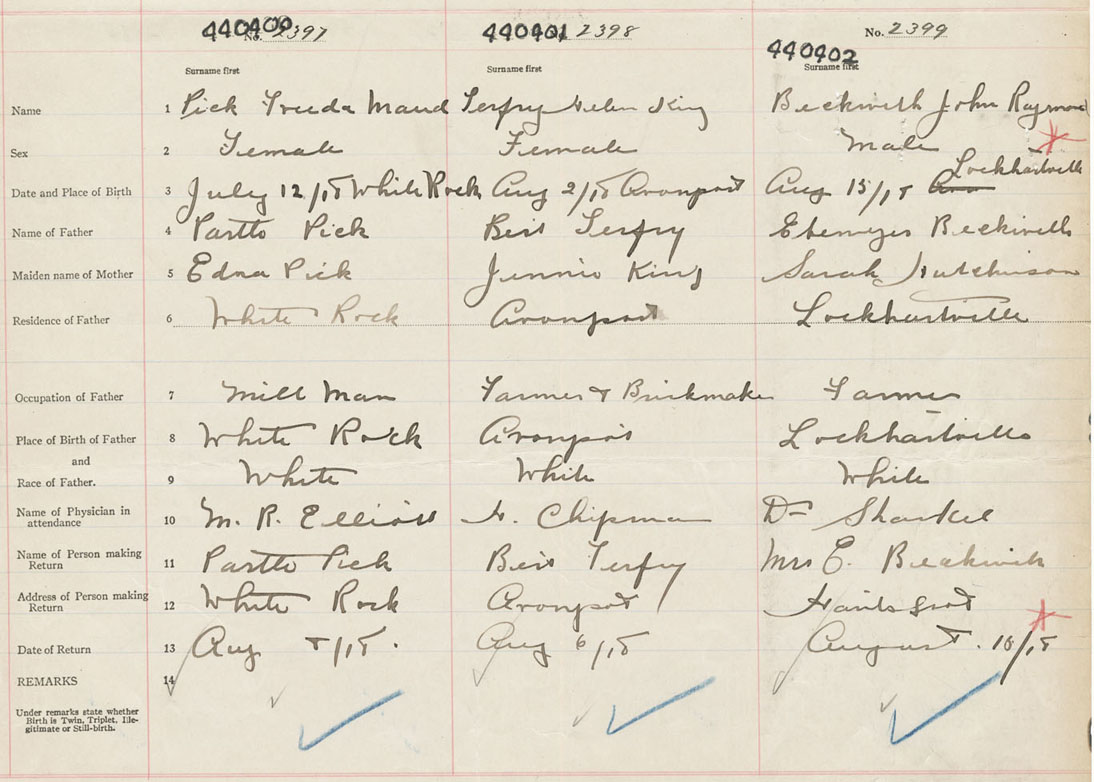 440400 No. 2397 440401 2398 No. 2399
440402
Surname first Surname first Surname first
Name 1 Pick Freda Maud Terfry Helen King Beckwith John Raymond
Sex 2 Female Female Male
Lockhartville
Date and Place of Birth 3 July 12/18 White Rock Aug 2/18 Avonport Aug 15/18 Avo
Name of Father 4 Pick Bert Terfry Ebenezer Beckwith
Maiden name of Mother 5 Edna Pick Jennie King Sarah Hutchinson
Residence of Father 6 White Rock Avonport Lockhartville
Occupation of Father 7 Mill Man Farmer & Brickmaker Farmer
Place of Birth of Father 8 White Rock Avonport Lockhartville
and
Race of Father. 9 White White White
Name of Physician in
attendance 10 M. R. Elliott H. Chipman Dr Shankel
Name of Person making
Return 11 Pick Bert Terfry Mrs E. Beckwith
Address of Person making
Return 12 White Rock Avonport Hantsport
Date of Return 13 Aug 8/18. Aug 6/18 August. 18/18
REMARKS 14
Under remarks state whether
Birth is Twin, Triplet, Ille-
gitimate or Still-birth.